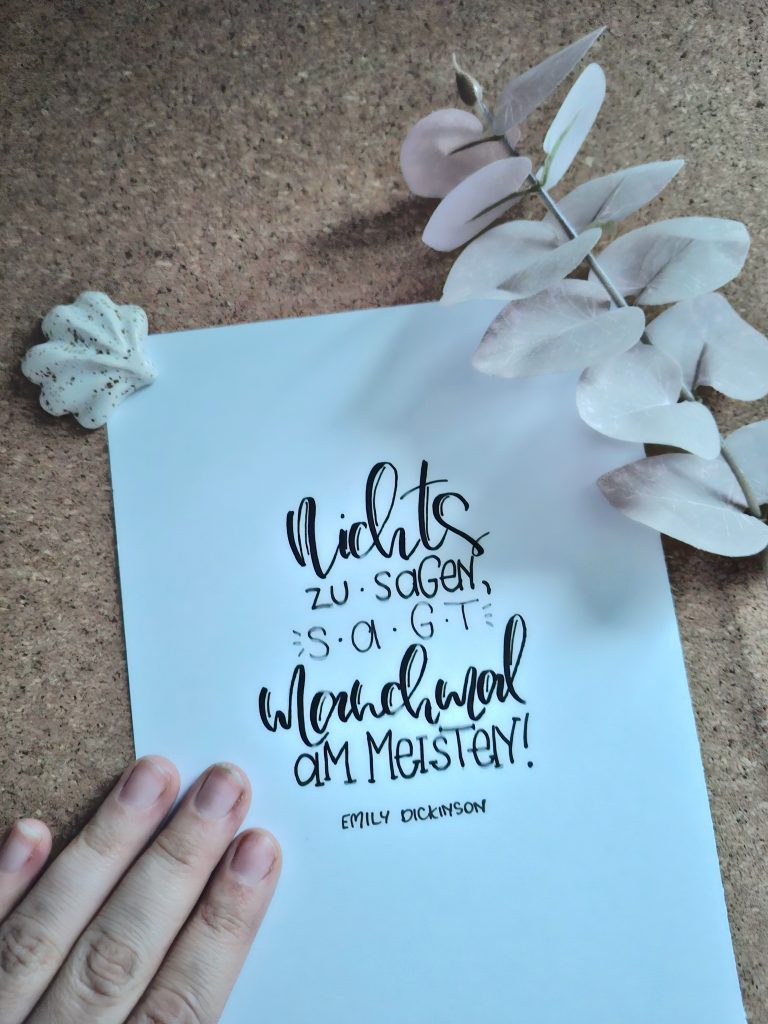 Nichts
ZU · SAGEN,
S · A · G · T
Manchmal
AM MEISTEN!
EMILY DICKINSON